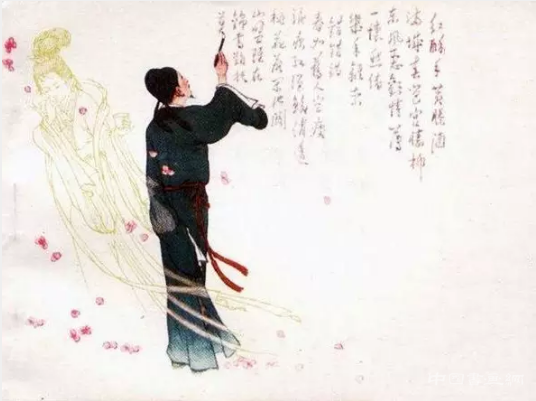 紅酥手黄縢酒
滿城春色宮墻柳
東風惡歡情薄
一懷愁緒
幾年離索
錯錯錯
春如舊人空瘦
淚痕紅浥鮫綃透
桃花落閒池閣
山盟雖在
錦書難托
莫